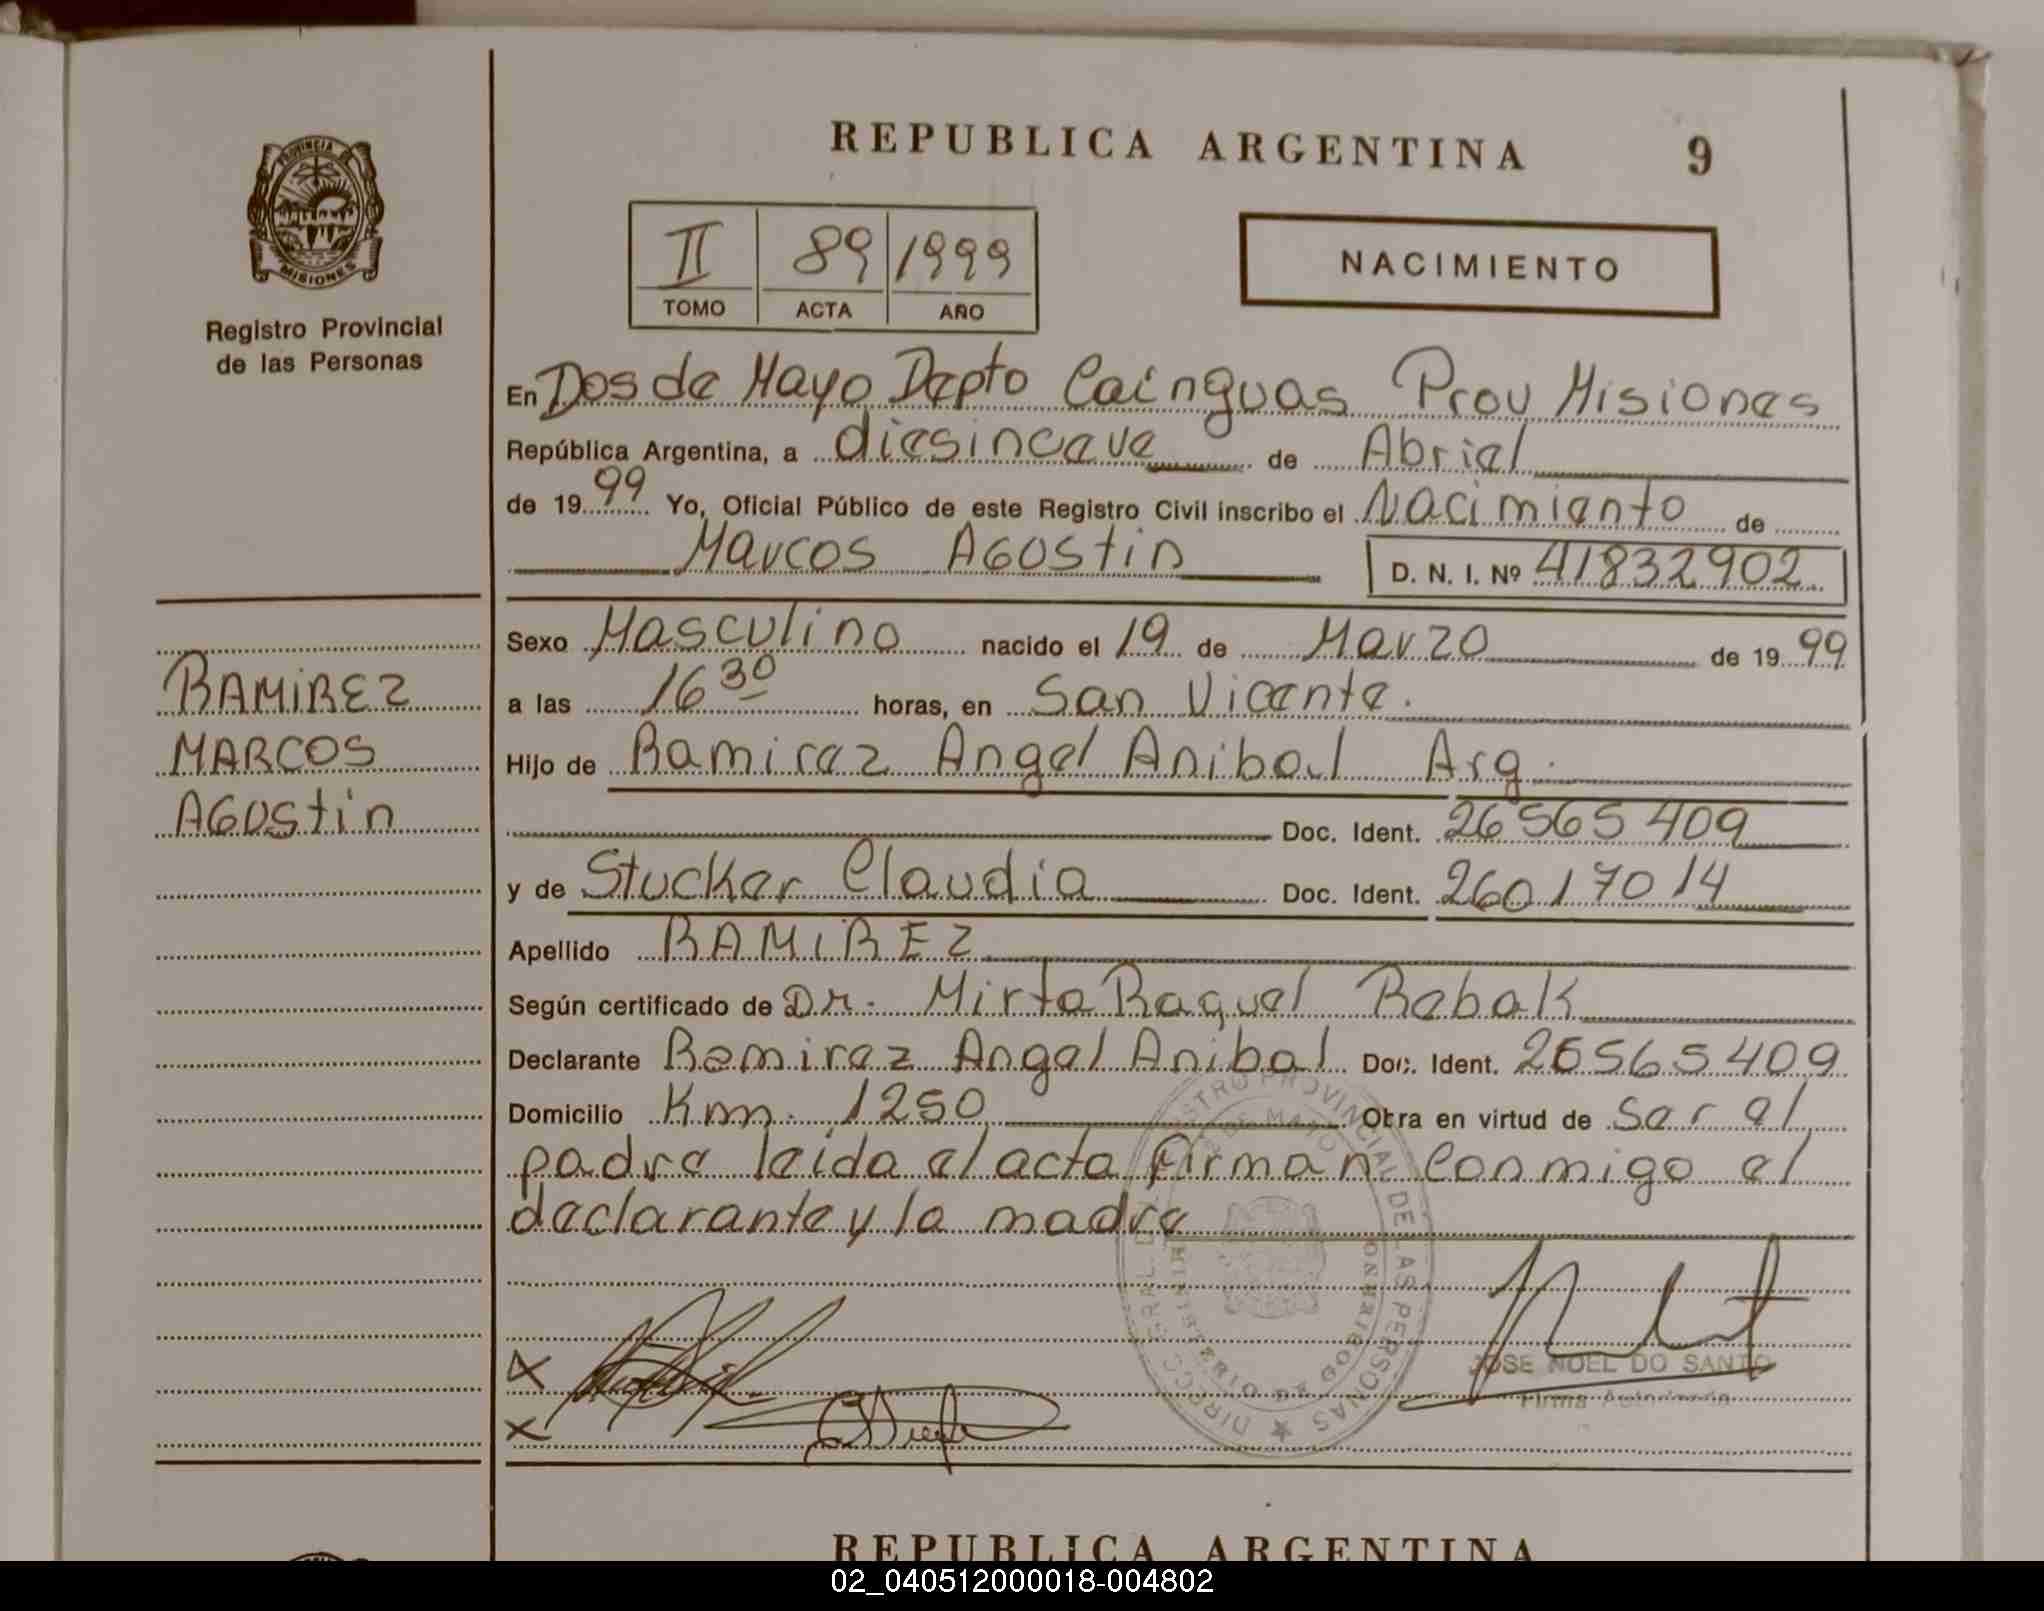 REPUBLICA ARGENTINA 9
PROVINCIA DE
MISIONES
Registro Provincial
de las Personas
II 89 1999
TOMO ACTA AÑO
NACIMIENTO
En Dos de Mayo Depto Cainguas Prov Misiones
República Argentina, a diesinueve de Abriel
de 1999 Yo, Oficial Público de este Registro Civil inscribo el Nacimiento de
Marcos Agustin D. N. I. Nº 41832902
Sexo Masculino nacido el 19 de Marzo de 1999
a las 16 30 horas, en San Vicente.
Hijo de Ramirez Angel Anibal Arg.
Doc. Ident. 26565409
y de Stucker Claudia Doc. Ident. 26017014
Apellido RAMIREZ
Según certificado de Dr. Mirta Raquel Rebak
Declarante Remirez Angel Anibal Doc. Ident. 26565409
Domicilio Km. 1250 Obra en virtud de Ser el
padre leida el acta firman conmigo el
declarante y la madre
RAMIREZ
MARCOS
AGUStin
DIRECC. GRAL. DEL REGISTRO PROVINCIAL DE LAS PERSONAS
DOS DE MAYO
MINISTERIO DE GOBIERNO
JOSE NOEL DO SANTO
Firma Autorizada
REPUBLICA ARGENTINA
02_040512000018-004802